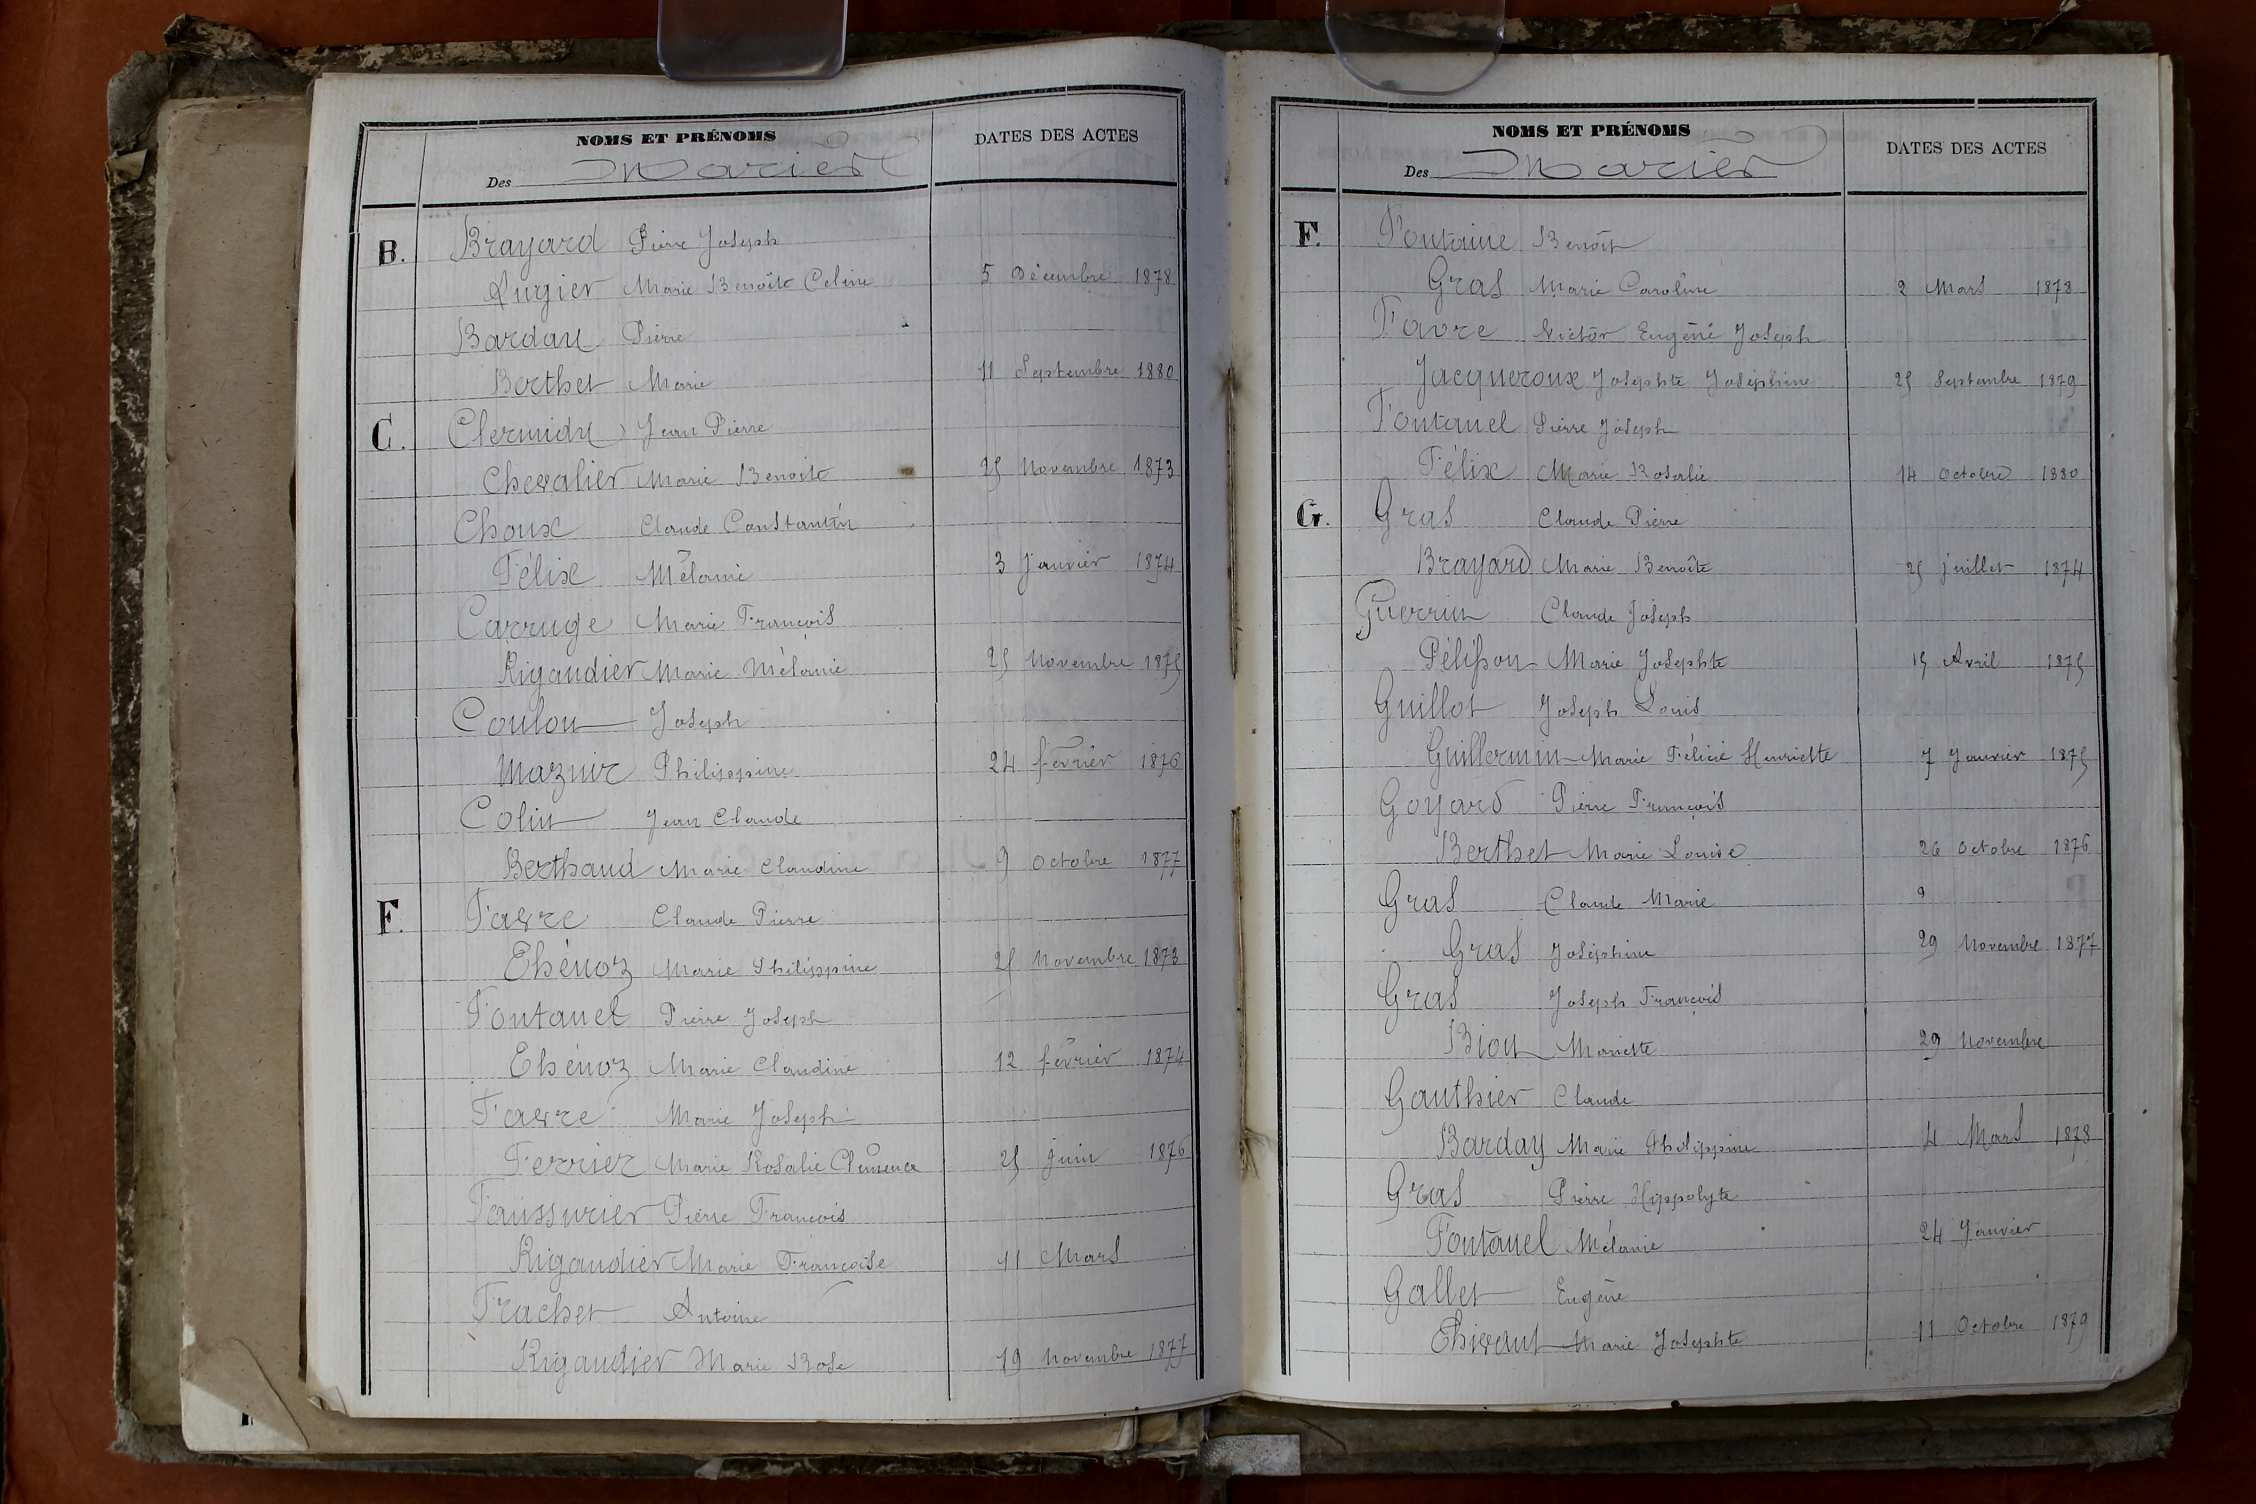 NOMS ET PRÉNOMS
DATES DES ACTES
Des Mariés
B. Brayard Pierre Joseph
Augier Marie Benoîte Celine 5 Décembre 1878
Barday Pierre
Berthet Marie 11 Septembre 1880
C. Clermidy Jean Pierre
Chevalier Marie Benoite 25 Novembre 1873
Choux Claude Constantin
Félix Mélanie 3 Janvier 1874
Carruge Marie François
Rigaudier Marie Mélanie 25 Novembre 1875
Coulon Joseph
Maznir Philippine 24 février 1876
Colin Jean Claude
Berthaud Marie Claudine 9 Octobre 1877
F. Favre Claude Pierre
Thénoz Marie Philippine 25 Novembre 1873
Fontanel Pierre Joseph
Thénoz Marie Claudine 12 février 1874
Favre Marie Joseph
Ferrier Marie Rosalie Clémence 25 juin 1876
Faussurier Pierre François
Rigaudier Marie Françoise 11 Mars
Frachet Antoine
Rigaudier Marie Rose 19 Novembre 1877
NOMS ET PRÉNOMS
DATES DES ACTES
Des Mariés
F. Fontaine Benoît
Gras Marie Caroline 2 Mars 1878
Favre Victor Eugène Joseph
Jacqueroux Josephte Joséphine 25 Septembre 1879
Fontanel Pierre Joseph
Félix Marie Rosalie 14 Octobre 1880
G. Gras Claude Pierre
Brayard Marie Benoîte 25 juillet 1874
Guerrin Claude Joseph
Pélisson Marie Josephte 15 Avril 1875
Guillot Joseph Louis
Guillermin Marie Félicie Henriette 7 Janvier 1875
Goyard Pierre François
Berthet Marie Louise 26 Octobre 1876
Gras Claude Marie 9
Gras Joséphine 29 Novembre 1877
Gras Joseph François
Biou Mariette 29 Novembre
Gauthier Claude
Barday Marie Philippine 4 Mars 1878
Gras Pierre Hippolyte
Fontanel Mélanie 24 Janvier
Gallet Eugène
Thivant Marie Josephte 11 Octobre 1879